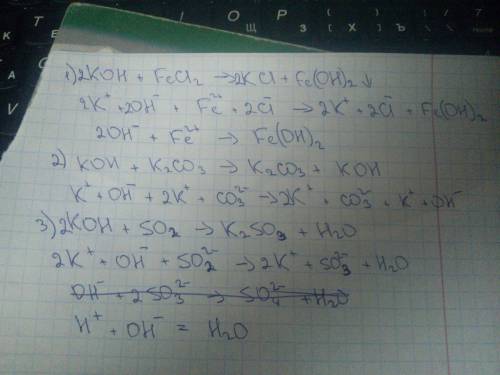 О Р
К Т
Щ З Х
1) 2KOH + FeCl₂ → 2KCl + Fe(OH)₂ ↓
2K⁺ + 2OH⁻ + Fe²⁺ + 2Cl⁻ → 2K⁺ + 2Cl⁻ + Fe(OH)₂
2OH⁻ + Fe²⁺ → Fe(OH)₂
2) KOH + K₂CO₃ → K₂CO₃ + KOH
K⁺ + OH⁻ + 2K⁺ + CO₃²⁻ → 2K⁺ + CO₃²⁻ + K⁺ + OH⁻
3) 2KOH + SO₂ → K₂SO₃ + H₂O
2K⁺ + OH⁻ + SO₂²⁻ → 2K⁺ + SO₃²⁻ + H₂O
OH⁻ + 2SO₃²⁻ → SO₄²⁻ + H₂O
H⁺ + OH⁻ = H₂O